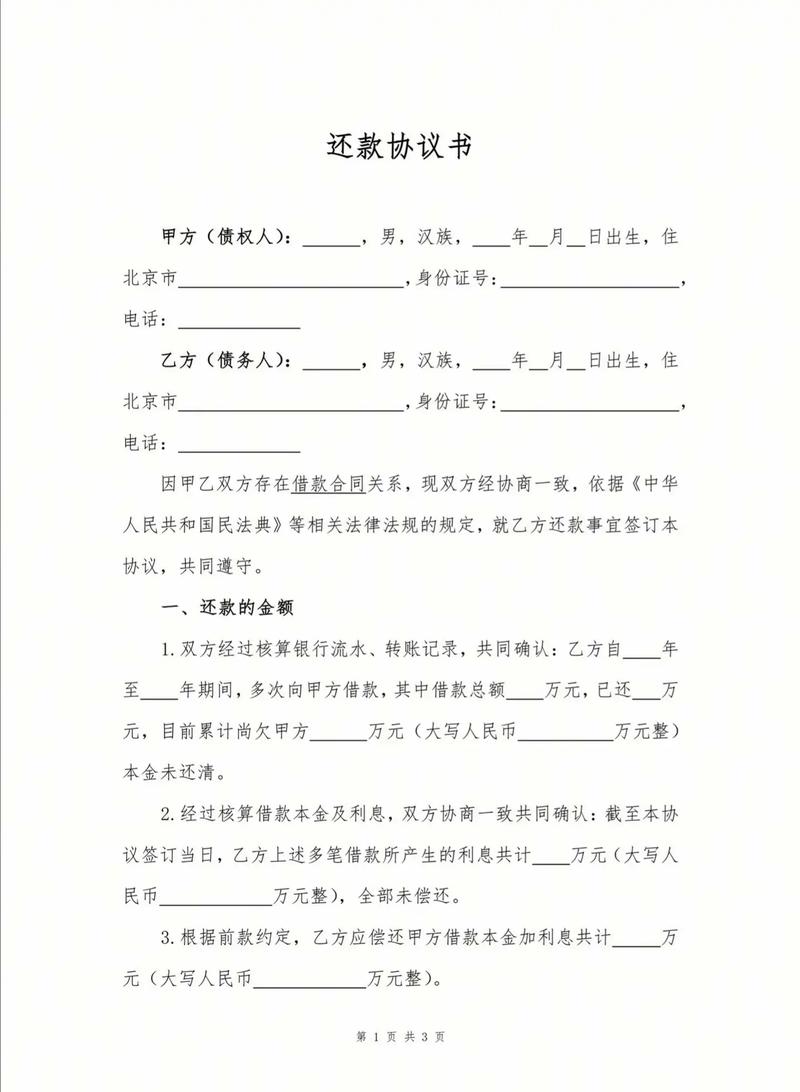 还款协议书
甲方（债权人）：______，男，汉族，____年__月__日出生，住
北京市________________________,身份证号:___________________,
电话：_____________
乙方（债务人）：______，男，汉族，____年__月__日出生，住
北京市________________________,身份证号:___________________,
电话：_____________
因甲乙双方存在借款合同关系，现双方经协商一致，依据《中华
人民共和国民法典》等相关法律法规的规定，就乙方还款事宜签订本
协议，共同遵守。
一、还款的金额
1.双方经过核算银行流水、转账记录，共同确认：乙方自____年
至____年期间，多次向甲方借款，其中借款总额____万元，已还___万
元，目前累计尚欠甲方______万元（大写人民币__________万元整）
本金未还清。
2.经过核算借款本金及利息，双方协商一致共同确认：截至本协
议签订当日，乙方上述多笔借款所产生的利息共计____万元（大写人
民币____________万元整），全部未偿还。
3.根据前款约定，乙方应偿还甲方借款本金加利息共计_____万
元（大写人民币____________万元整）。
第 1 页 共 3 页